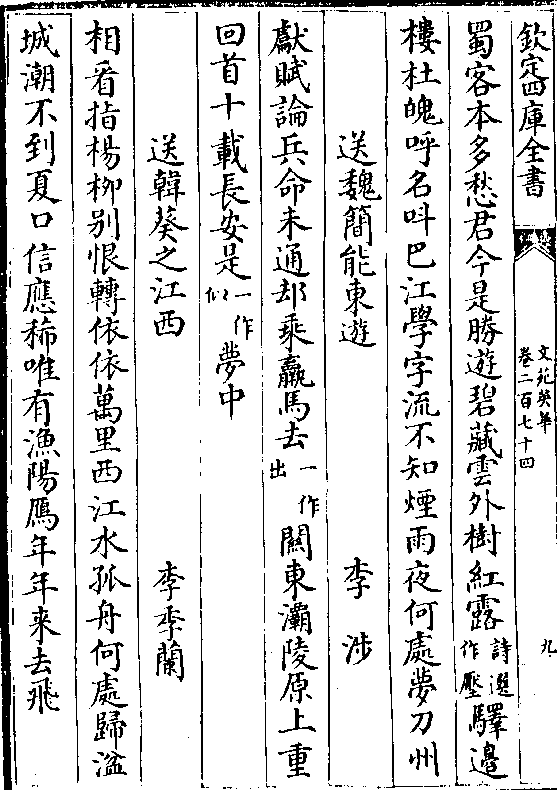 欽定四庫全書
文苑英華
卷二百七十四
九
蜀客本多愁君今是勝遊碧藏雲外樹紅露詩選作壓驛邊
樓杜魄呼名呌巴江學字流不知煙雨夜何處夢刀州
送魏簡能東遊 李涉
獻賦論兵命未通却乘羸馬去一作出關東灞陵原上重
回首十載長安是一作似夢中
送韓葵之江西 李季蘭
相看指楊柳别恨轉依依萬里西江水孤舟何處歸湓
城潮不到夏口信應稀唯有漁陽鴈年年来去飛